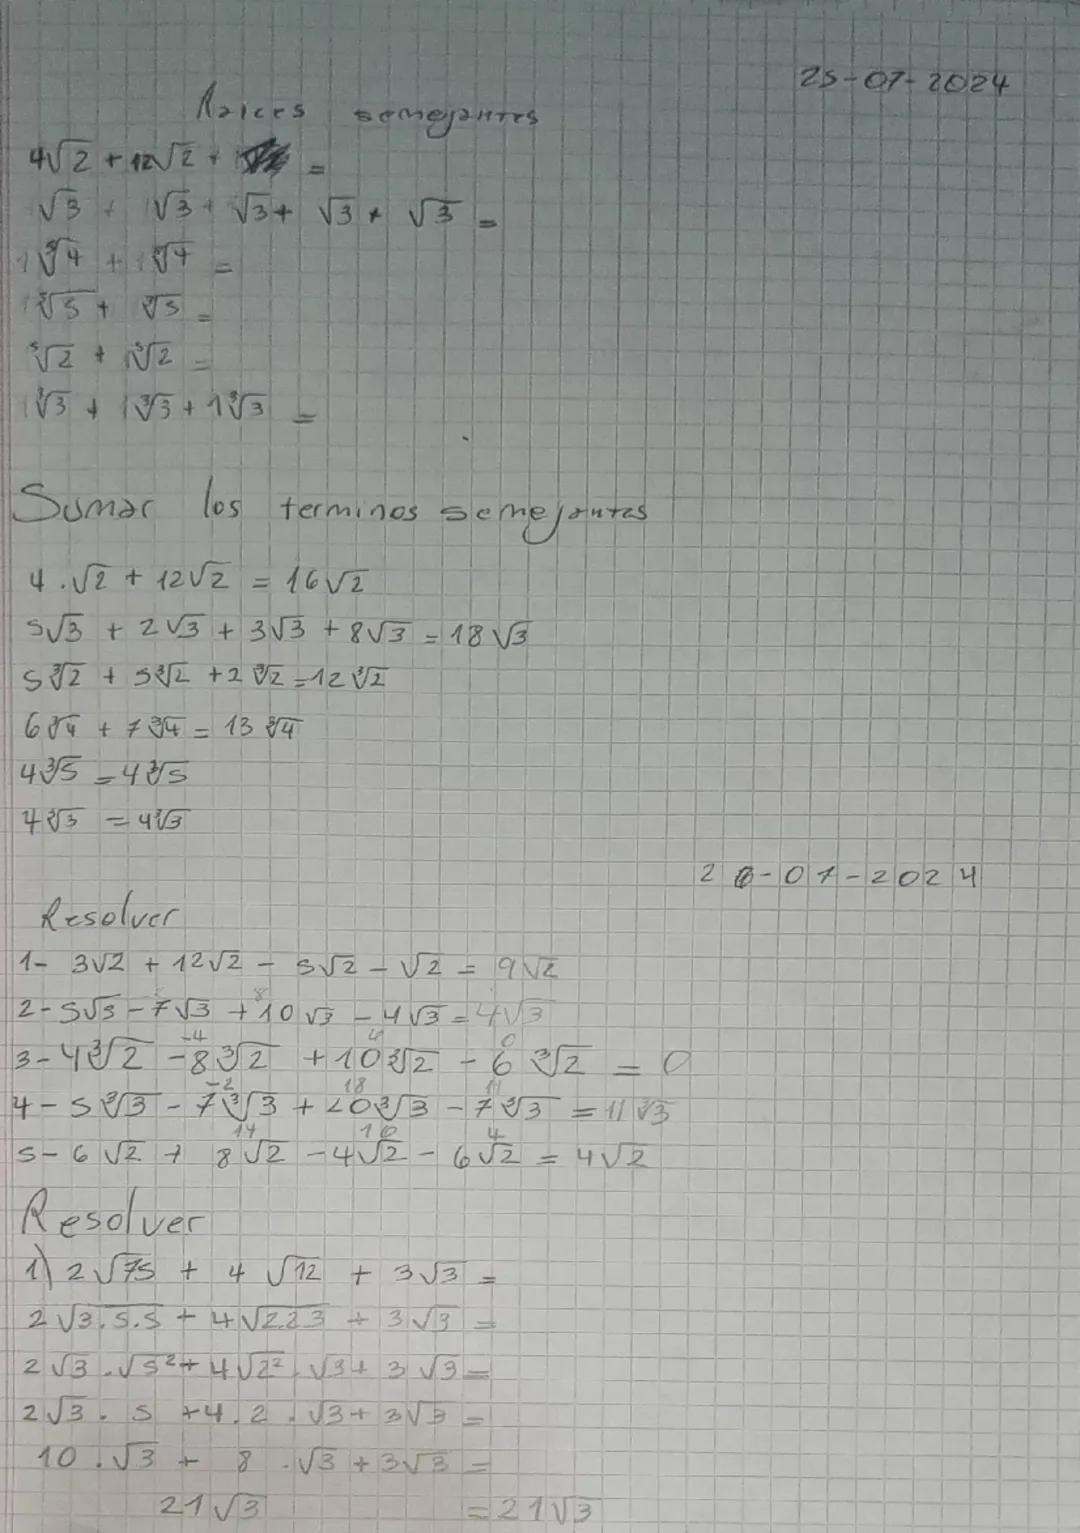 25-07-2024
Raices semejantes
4√2 + 12√2 + =
√3 + 1√3 + √3 + √3 + √3 =
1∛4 + 1∛4 =
1∛5 + ∛5 =
⁵√2 + 1⁵√2 =
1∛3 + 1∛3 + 1∛3 =
Sumar los terminos semejantes
4.√2 + 12√2 = 16√2
5√3 + 2√3 + 3√3 + 8√3 = 18√3
5∛2 + 5∛2 + 2∛2 = 12∛2
6∛4 + 7∛4 = 13∛4
4∛5 = 4∛5
4∛3 = 4∛3
26-07-2024
Resolver
1- 3√2 + 12√2 - 5√2 - √2 = 9√2
8
2- 5√3 - 7√3 + 10√3 - 4√3 = 4√3
-4 6 0
3- 4∛2 - 8∛2 + 10∛2 - 6∛2 = 0
-2 18 11
4- 5∛3 - 7∛3 + 20∛3 - 7∛3 = 11∛3
14 10 4
5- 6√2 + 8√2 - 4√2 - 6√2 = 4√2
Resolver
1) 2√75 + 4√12 + 3√3 =
2√3.5.5 + 4√2.2.3 + 3√3 =
2√3 . √5² + 4√2² . √3 + 3√3 =
2√3 . 5 + 4 . 2 . √3 + 3√3 =
10 . √3 + 8 . √3 + 3√3 =
21√3 = 21√3